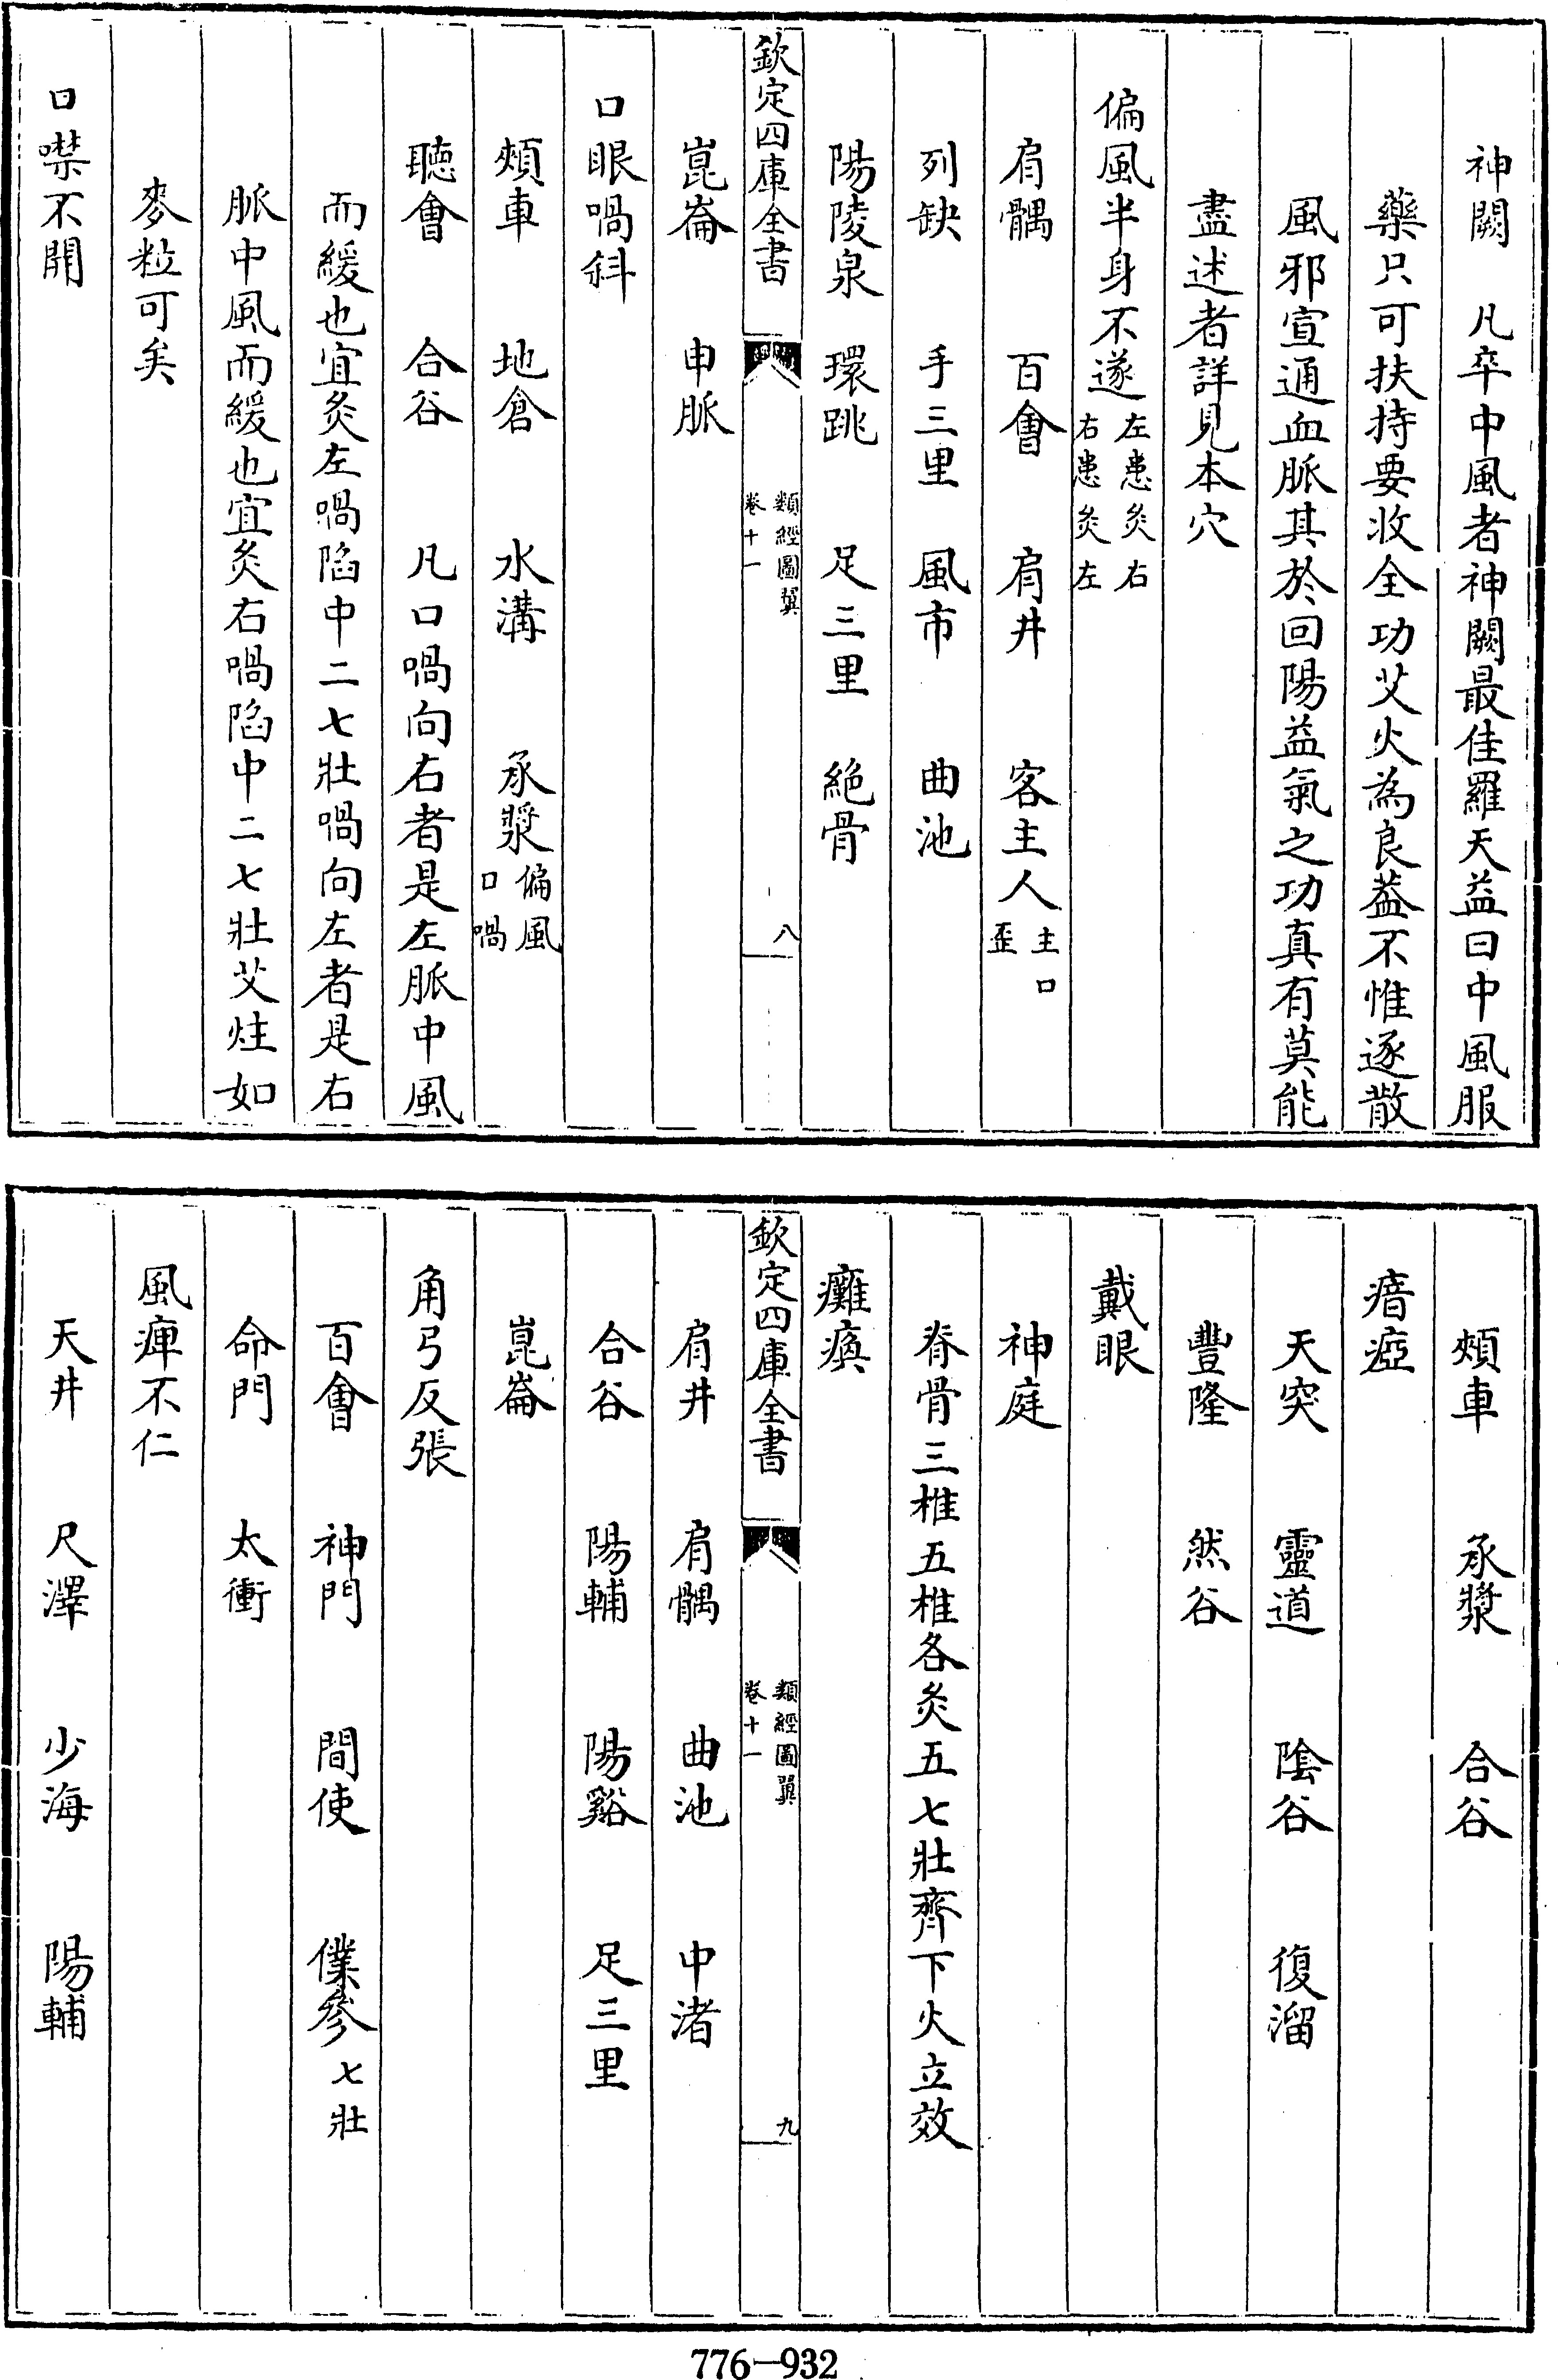 神闕　凡卒中風者神闕最佳羅天益曰中風服
藥只可扶持要收全功艾火為良葢不惟逐散
風邪宣通血脈其於回陽益氣之功真有莫能
盡述者詳見本穴
偏風半身不遂左患灸右右患灸左
肩髃　百會　肩井　客主人主口歪
列缺　手三里　風市　曲池
陽陵泉　環跳　足三里　絶骨
欽定四庫全書　類經圖翼卷十一　八
崑崙　申脈
口眼喎斜
頰車　地倉　水溝　承漿偏風口喎
聽會　合谷　凡口喎向右者是左脈中風
而緩也宜灸左喎陷中二七壯喎向左者是右
脈中風而緩也宜灸右喎陷中二七壯艾炷如
麥粒可矣
口噤不開
頰車　承漿　合谷
瘖瘂
天突　靈道　陰谷　復溜
豐隆　然谷
戴眼
神庭
脊骨三椎五椎各灸五七壯齊下火立效
癱瘓
欽定四庫全書　類經圖翼卷十一　九
肩井　肩髃　曲池　中渚
合谷　陽輔　陽谿　足三里
崑崙
角弓反張
百會　神門　間使　僕參七壯
命門　太衝
風痺不仁
天井　尺澤　少海　陽輔
776-932